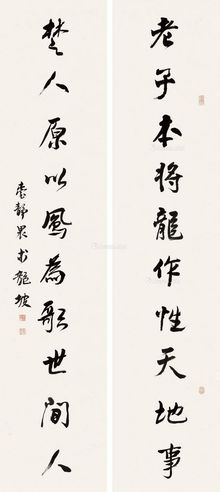 老子本將龍作性天地事
楚人原以鳳為歌世間人
臺靜農於龍坡